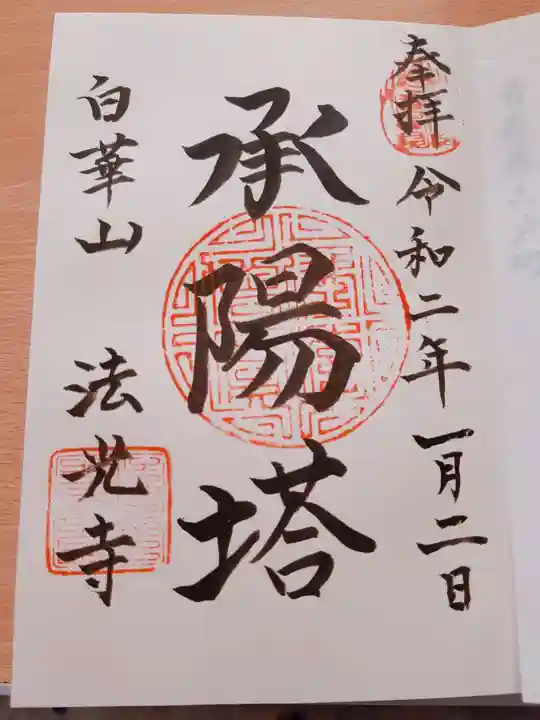 奉拝
令和二年一月二日
承陽塔
白華山 法光寺